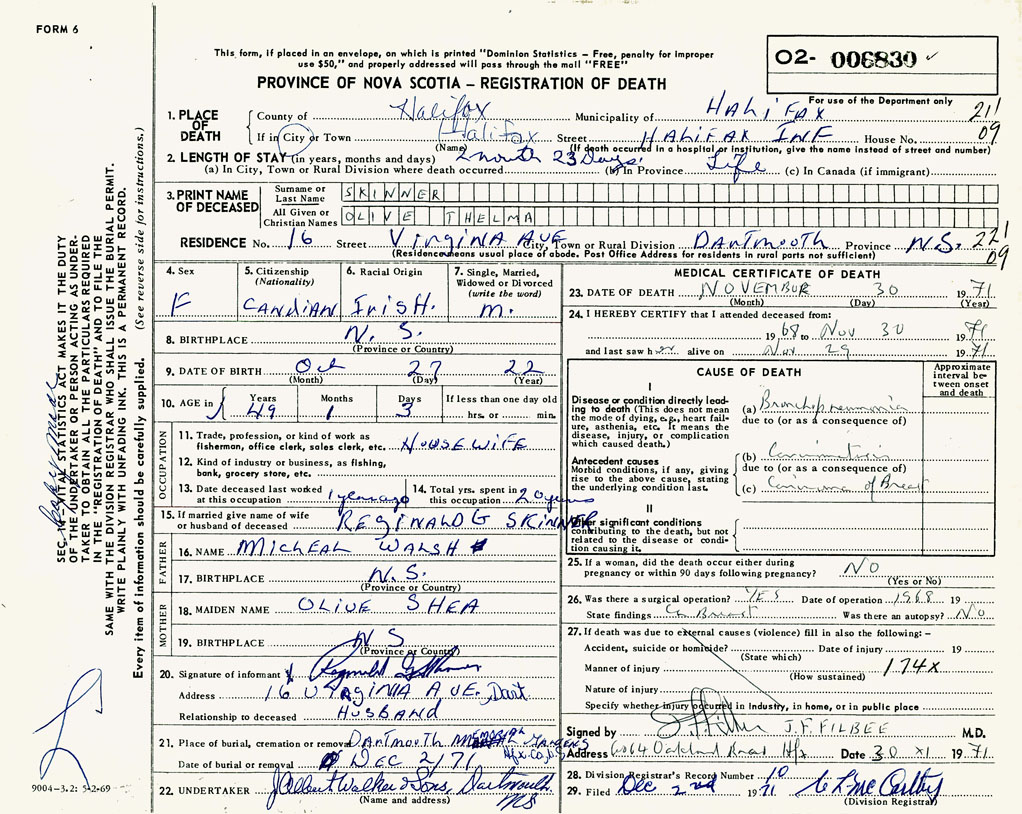 FORM 6
This form, if placed in an envelope, on which is printed "Dominion Statistics – Free, penalty for improper
use $50," and properly addressed will pass through the mail "FREE"
O2- 006830
PROVINCE OF NOVA SCOTIA – REGISTRATION OF DEATH
For use of the Department only
1. PLACE OF DEATH
County of Halifax Municipality of HALIFAX 21
If in City or Town Halifax Street HALIFAX INF House No. 09
(Name) (If death occurred in a hospital or institution, give the name instead of street and number)
2. LENGTH OF STAY (in years, months and days) 2 month 23 Days. Life
(a) In City, Town or Rural Division where death occurred (b) In Province (c) In Canada (if immigrant)
3. PRINT NAME OF DECEASED
Surname or Last Name SKINNER
All Given or Christian Names OLIVE THELMA
RESIDENCE No. 16 Street VIRGINIA AVE City, Town or Rural Division DARTMOUTH Province N.S. 22
(Residence means usual place of abode. Post Office Address for residents in rural parts not sufficient) 09
4. Sex
F
5. Citizenship
(Nationality)
CANDIAN
6. Racial Origin
IRISH.
7. Single, Married,
Widowed or Divorced
(write the word)
M.
8. BIRTHPLACE N. S.
(Province or Country)
9. DATE OF BIRTH Oct 27 22
(Month) (Day) (Year)
10. AGE in
Years Months Days If less than one day old
49 1 3 hrs. or min.
OCCUPATION
11. Trade, profession, or kind of work as
fisherman, office clerk, sales clerk, etc. HOUSEWIFE
12. Kind of industry or business, as fishing,
bank, grocery store, etc.
13. Date deceased last worked
at this occupation 1 year ago
14. Total yrs. spent in
this occupation 20 years
15. If married give name of wife
or husband of deceased REGINALD G SKINNER
FATHER
16. NAME MICHEAL WALSH
17. BIRTHPLACE N. S.
(Province or Country)
MOTHER
18. MAIDEN NAME OLIVE SHEA
19. BIRTHPLACE N S
(Province or Country)
20. Signature of informant
Address 16 VIRGINIA AVE. Dart
Relationship to deceased HUSBAND
21. Place of burial, cremation or removal DARTMOUTH MEMORIAL GARDENS
Hfx. Co.
Date of burial or removal DEC 2/71
22. UNDERTAKER J Albert Walker & Sons, Dartmouth
(Name and address) NS
MEDICAL CERTIFICATE OF DEATH
23. DATE OF DEATH NOVEMBUR 30 1971
(Month) (Day) (Year)
24. I HEREBY CERTIFY that I attended deceased from:
1968 to Nov 30 1971
and last saw her alive on Nov 29 1971
CAUSE OF DEATH
Approximate
interval be-
tween onset
and death
I
Disease or condition directly lead-
ing to death (This does not mean
the mode of dying, e.g., heart fail-
ure, asthenia, etc. It means the
disease, injury, or complication
which caused death.)
(a) Bronchopneumonia
due to (or as a consequence of)
Antecedent causes
Morbid conditions, if any, giving
rise to the above cause, stating
the underlying condition last.
(b)
due to (or as a consequence of)
(c) Carcinoma of Breast
II
Other significant conditions
contributing to the death, but not
related to the disease or condi-
tion causing it.
25. If a woman, did the death occur either during
pregnancy or within 90 days following pregnancy? NO
(Yes or No)
26. Was there a surgical operation? YES Date of operation 1968 19
State findings Ca Breast Was there an autopsy? NO
27. If death was due to external causes (violence) fill in also the following: –
Accident, suicide or homicide? Date of injury 19
(State which)
Manner of injury 174X
(How sustained)
Nature of injury
Specify whether injury occurred in industry, in home, or in public place
Signed by J.F. FILBEE M.D.
Address 6064 Oakland Road Hfx Date 30 XI 1971
28. Division Registrar's Record Number 10
29. Filed Dec 2nd 1971
(Division Registrar)
9004-3.2: 5-2-69
SEC. 14 VITAL STATISTICS ACT MAKES IT THE DUTY
OF THE UNDERTAKER OR PERSON ACTING AS UNDER-
TAKER TO OBTAIN ALL THE PARTICULARS REQUIRED
IN THE "REGISTRATION OF DEATH" AND TO FILE THE
SAME WITH THE DIVISION REGISTRAR WHO SHALL ISSUE THE BURIAL PERMIT.
WRITE PLAINLY WITH UNFADING INK. THIS IS A PERMANENT RECORD.
Every item of information should be carefully supplied. (See reverse side for instructions.)